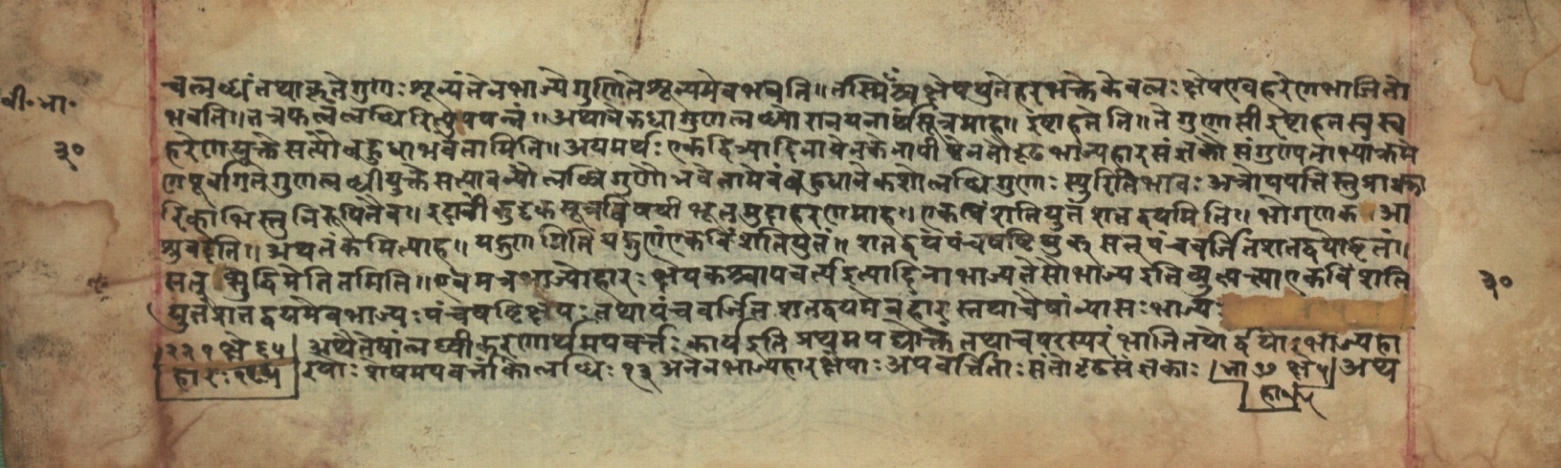 च लब्धं तथाकृते गुणः शून्यं तेन भाज्ये गुणिते शून्यमेव भवति॥ तस्मिंश्च क्षेपयुते हरभक्ते केवलः क्षेप एव हरेण भाजितो
बी॰ भा॰
भवति॥ तत्र फलं लब्धिरित्युपपन्नं॥ अथानेकधा गुणलब्ध्योरानयनार्थं सूत्रमाह॥ इष्टाहतेति॥ ते गुणाप्ती इष्टाहतस्वस्व
३०
हरेण युक्ते सत्यौ बहुधा भवतामिति॥ अयमर्थः एकद्वित्र्यादिना येन केनापीष्टेन तौ दृढभाज्यहारसंज्ञकौ संगुण्य ताभ्यां क्रमे
ण पूर्वागते गुणलब्धी युक्ते सत्यावन्यौ लब्धिगुणौ भवेतामेवं बहुधानेकशो लब्धिगुणाः स्युरितिभावः अत्रोपपत्तिस्तु
निरूपितैव॥ इदानीं कुट्टकसूत्रविषयी भूतमुदाहरणमाह॥ एकविंशतियुतं शतद्वयमिति॥ भो गणक आ
श्रु वदेति॥ अथ तं कमित्याह॥ यद्गुणमिति यद्गुणं एकविंशतियुतं॥ शतद्वयं पंचषष्टियुक् सत् पंचवर्जितशतद्वयोद्धृतं॥
सत् शुद्धिमेति तमिति॥ एवमत्र भाज्योहारः क्षेपकश्चापवर्त्य इत्यादिना भाज्यते सौ भाज्य इति व्युत्पत्त्या एकविंशति
३०
युतं शतद्वयमेव भाज्यः पंचषष्टि क्षेपः तथा पंचवर्जित शतद्वयमत्र हारस्तथा चैषां न्यासः भाज्य
२२१ क्षे ६५ अथैतेषां लघ्वीकरणार्थमपवर्त्तः कार्य इति अथमपवर्त्तांकं तथा च परस्परं भाजितयो भाज्यहा
हारः १९५ रयोः शेषमपवर्त्तांको लब्धिः १३ अनेन भाज्यहारक्षेपाः अपवर्त्तिताः संतो दृढसंज्ञकाः भा १७ क्षे ५ अथ
हा १५